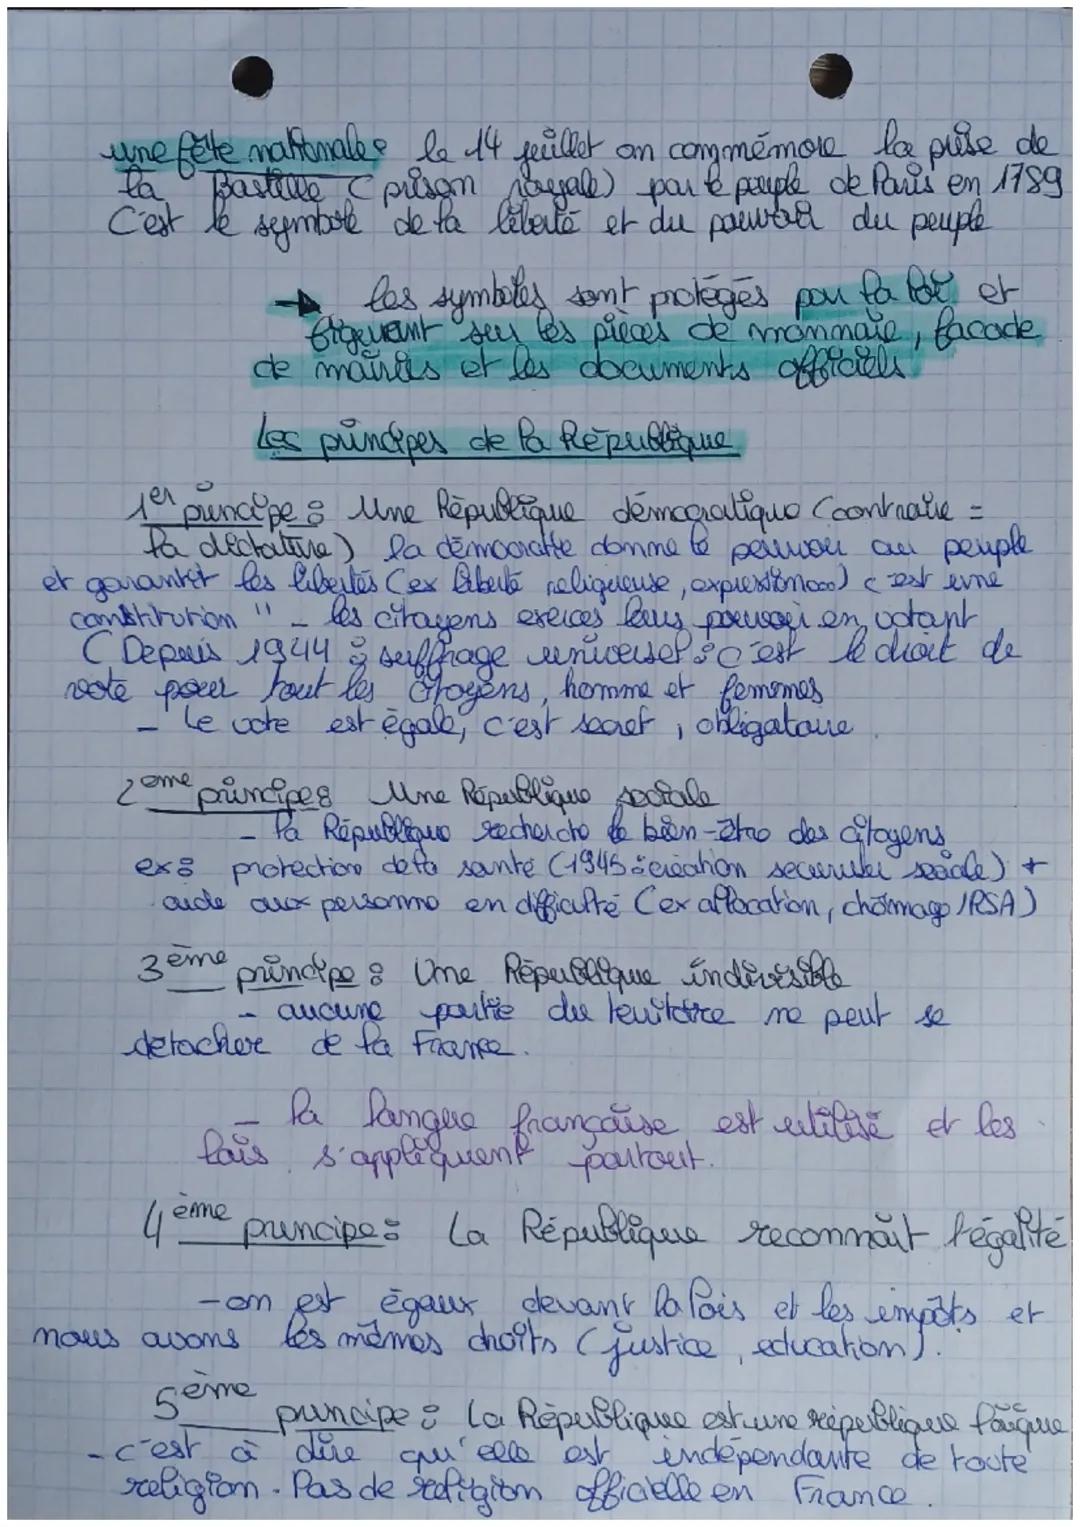 une fête nationale : le 14 juillet on commémore la prise de
la Bastille (prison royale) par le peuple de Paris en 1789
C'est le symbole de la liberté et du pouvoir du peuple
→ les symboles sont protégés par la loi et
figurent sur les pièces de monnaie, facade
de mairies et les documents officiels
Les principes de la République
1er principe : Une République démocratique (contraire =
la dictature) la démocratie donne le pouvoir au peuple
et garantit les libertés (ex liberté religieuse, expression...) c'est une
constitution " - les citoyens exerces leurs pouvoir en votant
(Depuis 1944 : suffrage universel : c'est le droit de
vote pour tout les citoyens, homme et femmes
- Le vote est égale, c'est secret, obligatoire.
2ème principe : Une République sociale
- la République recherche le bien-être des citoyens
ex : protection de la santé (1945 : création securité sociale) +
aide aux personne en difficulté (ex allocation, chômage / RSA)
3ème principe : Une République indivisible
- aucune partie du territoire ne peut se
détacher de la France.
- la langue française est utilisé et les
lois s'appliquent partout.
4ème principe : La République reconnaît l'égalité
- on est égaux devant la lois et les impôts et
nous avons les mêmes droits (justice, education).
5ème principe : La République est une république laïque
- c'est à dire qu'elle est indépendante de toute
religion. Pas de religion officielle en France.